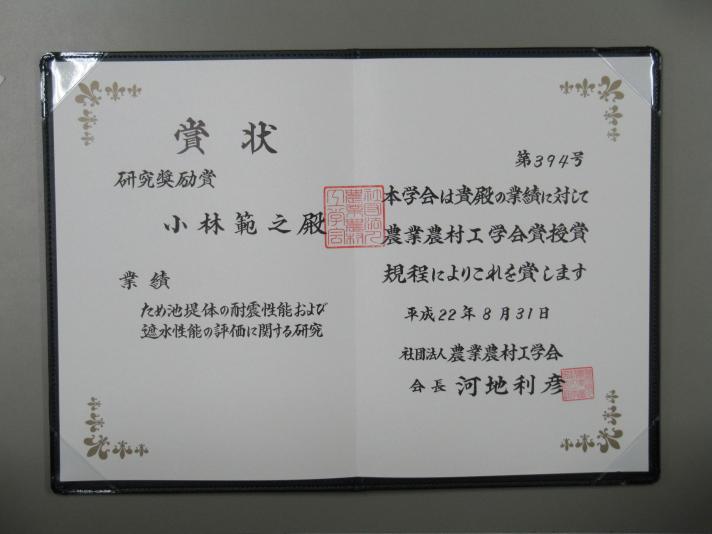 賞状
研究奨励賞
小林範之殿
業績
ため池堤体の耐震性能および
遮水性能の評価に関する研究
第394号
本学会は貴殿の業績に対して
農業農村工学会賞授賞
規程によりこれを賞します
平成22年8月31日
社団法人農業農村工学会
会長 河地利彦